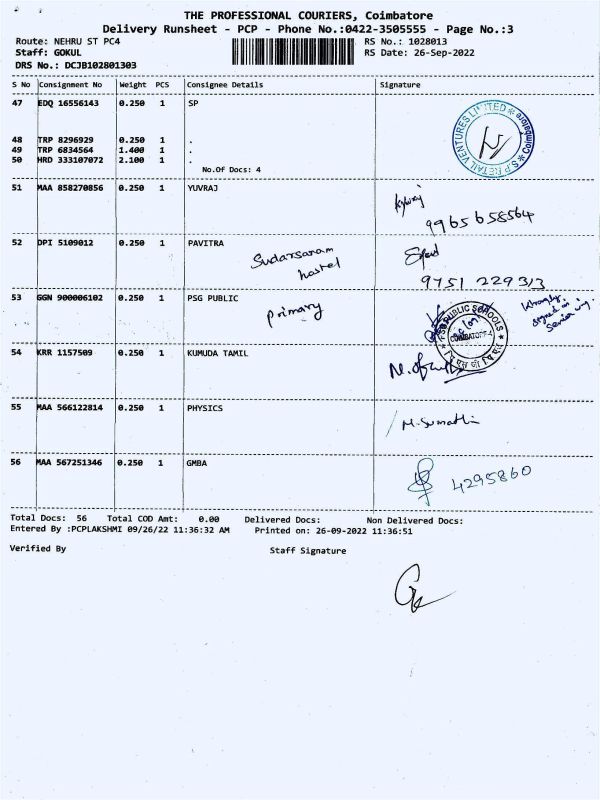 THE PROFESSIONAL COURIERS, Coimbatore
Delivery Runsheet - PCP - Phone No.:0422-3505555 - Page No.:3
Route: NEHRU ST PC4 RS No.: 1028013
Staff: GOKUL RS Date: 26-Sep-2022
DRS No.: DCJB102801303
S No Consignment No Weight PCS Consignee Details Signature
47 EDQ 16556143 0.250 1 SP
S.P RETAIL VENTURES LIMITED * Coimbatore *
48 TRP 8296929 0.250 1 .
49 TRP 6834564 1.400 1 .
50 HRD 333107072 2.100 1 .
No.Of Docs: 4
51 MAA 858270856 0.250 1 YUVRAJ
9965658564
52 DPI 5109012 0.250 1 PAVITRA
Sudarsanam
hostel
9751 229313
53 GGN 900006102 0.250 1 PSG PUBLIC
Primary
PSG PUBLIC SCHOOLS
COIMBATORE-4
Wrongly
signed in
Senior wing.
54 KRR 1157509 0.250 1 KUMUDA TAMIL
55 MAA 566122814 0.250 1 PHYSICS
M. Sumathi
56 MAA 567251346 0.250 1 GMBA
4295860
Total Docs: 56 Total COD Amt: 0.00 Delivered Docs: Non Delivered Docs:
Entered By :PCPLAKSHMI 09/26/22 11:36:32 AM Printed on: 26-09-2022 11:36:51
Verified By Staff Signature